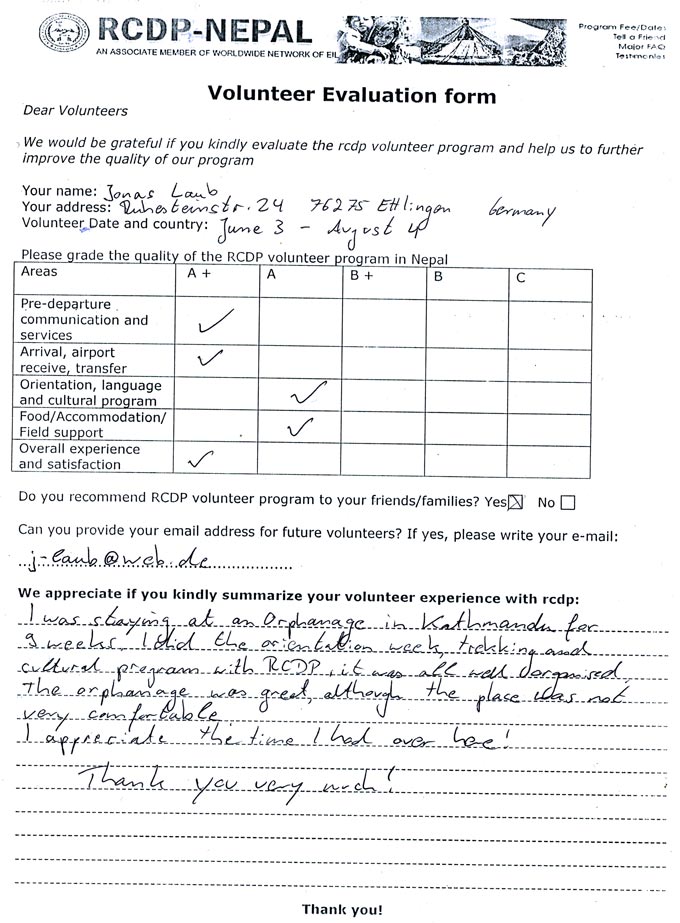 RCDP-NEPAL
AN ASSOCIATE MEMBER OF WORLDWIDE NETWORK OF EIL
Program Fee/Dates
Tell a Friend
Major FAQ
Testimonies
Volunteer Evaluation form
Dear Volunteers
We would be grateful if you kindly evaluate the rcdp volunteer program and help us to further
improve the quality of our program
Your name: Jonas Laub
Your address: Ruhesteinstr. 24 76275 Ettlingen Germany
Volunteer Date and country: June 3 - August 4
Please grade the quality of the RCDP volunteer program in Nepal
Areas A + A B + B C
Pre-departure
communication and
services ✓
Arrival, airport
receive, transfer ✓
Orientation, language
and cultural program ✓
Food/Accommodation/
Field support ✓
Overall experience
and satisfaction ✓
Do you recommend RCDP volunteer program to your friends/families? Yes ☒ No ☐
Can you provide your email address for future volunteers? If yes, please write your e-mail:
j-laub@web.de
We appreciate if you kindly summarize your volunteer experience with rcdp:
I was staying at an Orphanage in Kathmandu for
9 weeks. I did the orientation week, trekking and
cultural program with RCDP, it was all well organised.
The orphanage was great, although the place was not
very comfortable.
I appreciate the time I had over here!
Thank you very much!
Thank you!